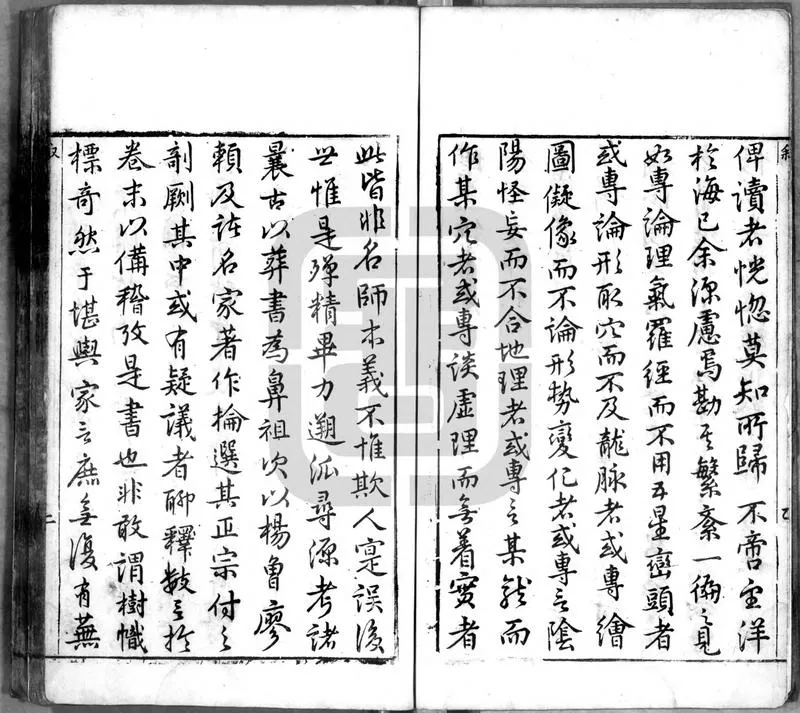 俾讀者恍惚莫知所歸不啻望洋
於海已余深慮焉勘其繁紊一偏之見
如專論理氣羅經而不用五星巒頭者
或專論形取穴而不及龍脉者或專繪
圖儗像而不論形勢變化者或專言陰
陽怪妄而不合地理者或專言某龍而
作某穴者或專談虛理而無着實者
此皆非名師本義不惟欺人寔誤後
世惟是殫精畢力遡流尋源考諸
曩古以葬書為鼻祖次以楊曾廖
賴及諸名家著作掄選其正宗付之
剞劂其中或有疑議者聊釋數言於
卷末以備稽攷是書也非敢謂樹幟
標奇然于堪輿家言庶無復有蕪
叙 二